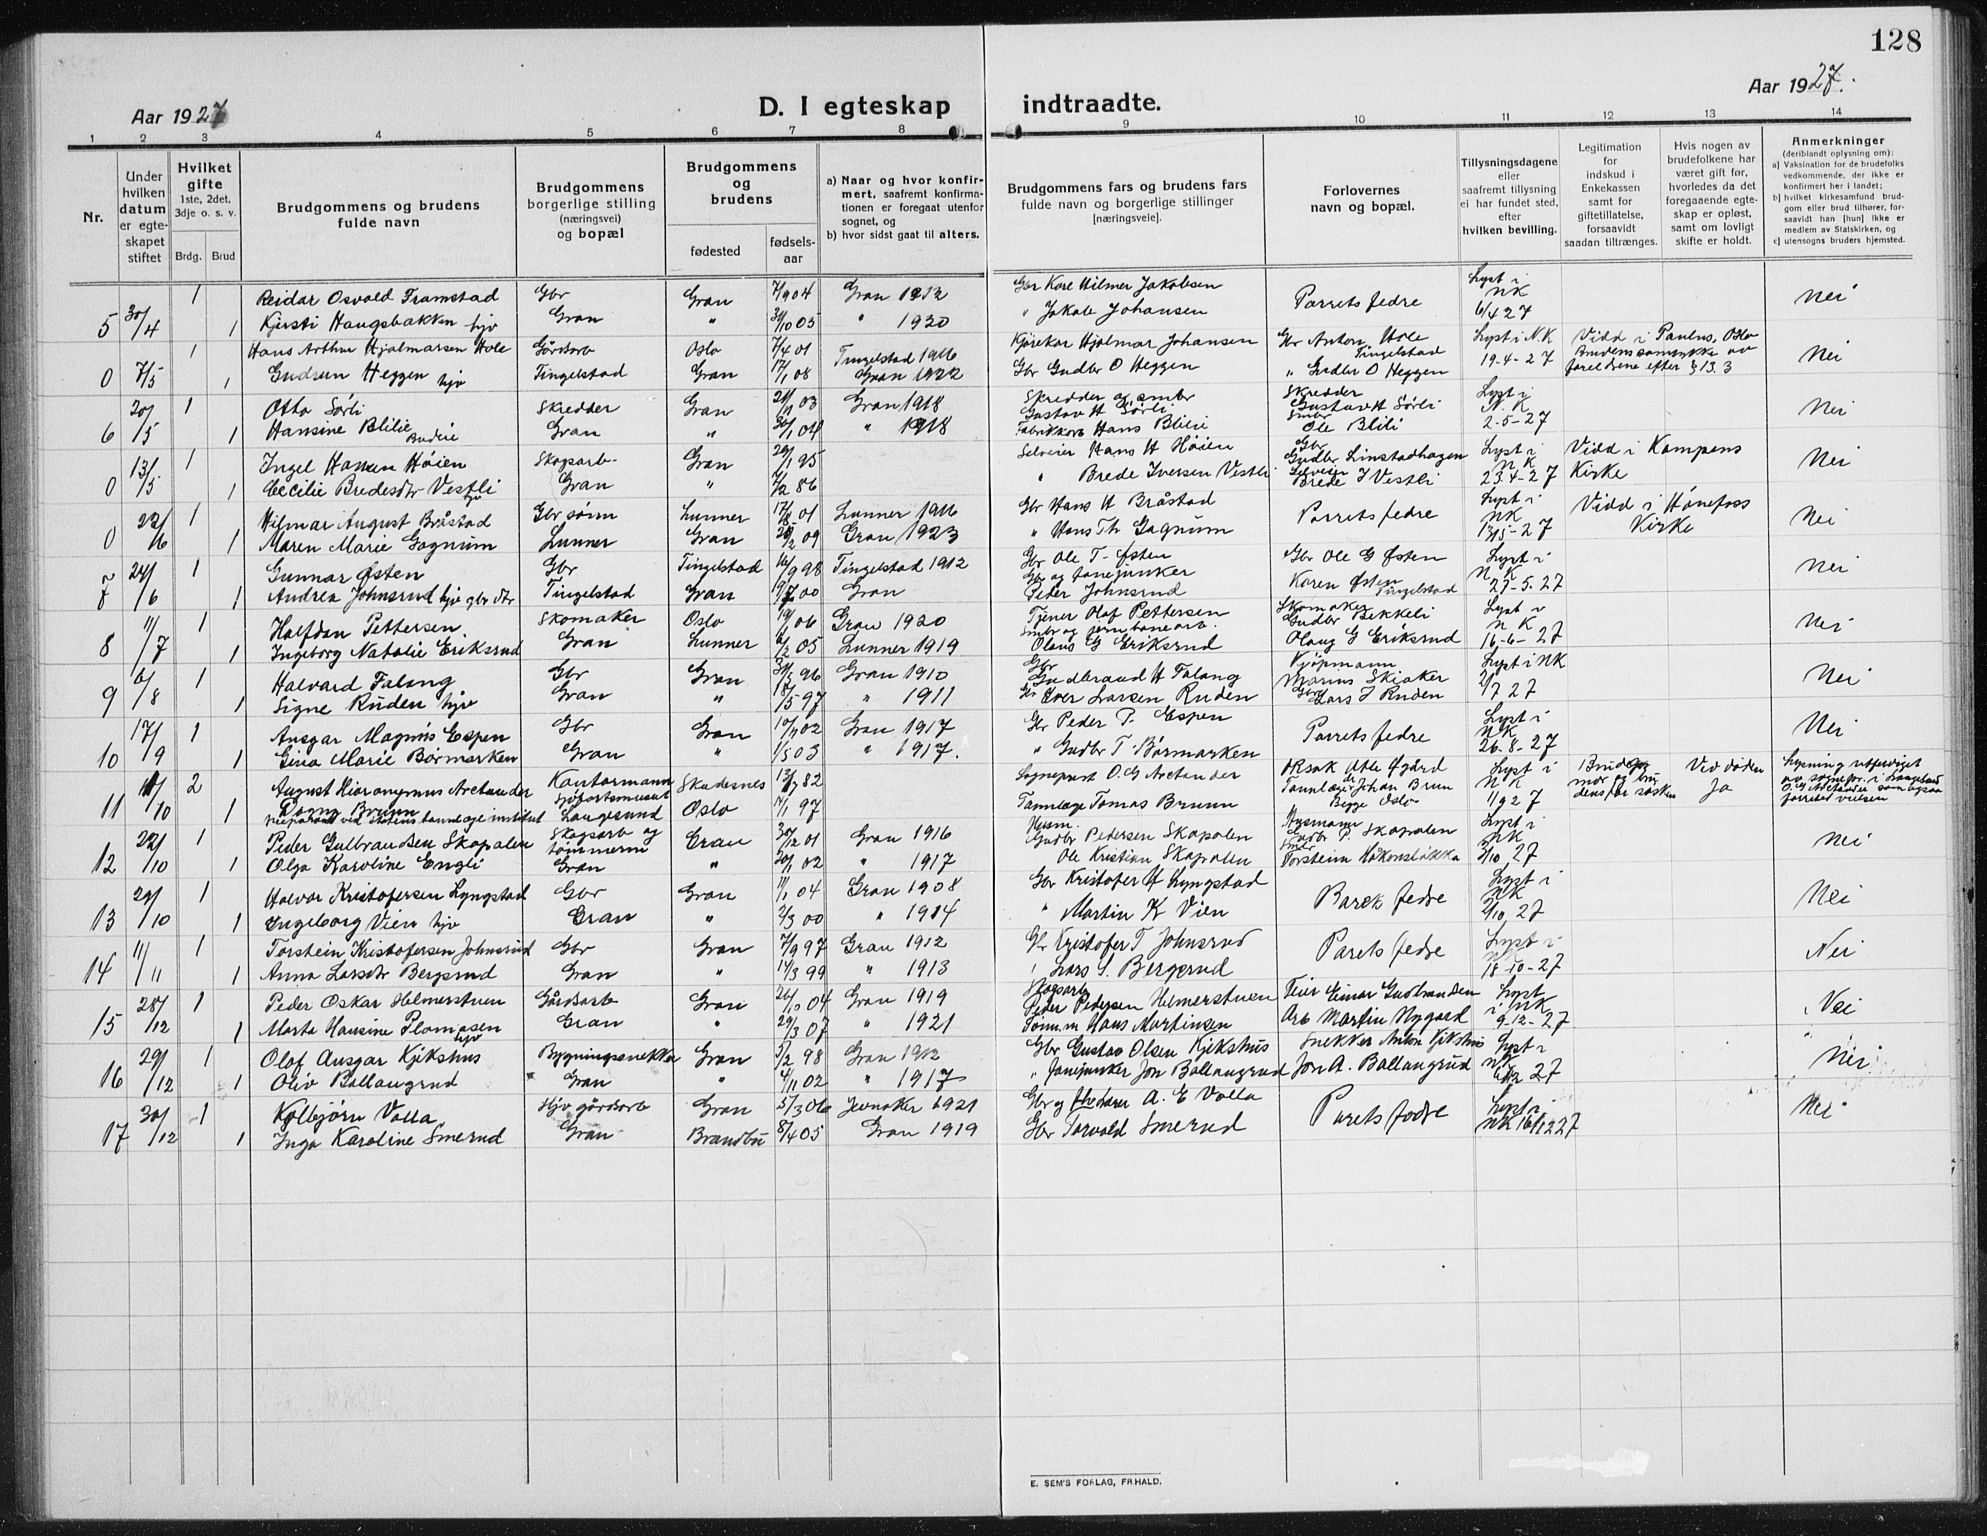 128
Aar 1927
D. I egteskap indtraadte.
Aar 1927.
1 2 3 4 5 6 7 8 9 10 11 12 13 14
Nr.
Under hvilken datum er egte-skapet stiftet
Hvilket gifte 1ste, 2det, 3dje o. s. v.
Brdg. Brud
Brudgommens og brudens fulde navn
Brudgommens borgerlige stilling (næringsvei) og bopæl
Brudgommens og brudens
fødested
fødsels-aar
a) Naar og hvor konfir-mert, saafremt konfirma-tionen er foregaat utenfor sognet, og
b) hvor sidst gaat til alters.
Brudgommens fars og brudens fars fulde navn og borgerlige stillinger [næringsveie].
Forlovernes navn og bopæl.
Tillysningsdagene eller saafremt tillysning ei har fundet sted, efter hvilken bevilling.
Legitimation for indskud i Enkekassen samt for giftetillatelse, forsaavidt saadan tiltrænges.
Hvis nogen av brudefolkene har været gift før, hvorledes da det foregaaende egte-skap er opløst, samt om lovligt skifte er holdt.
Anmerkninger (deriblandt oplysning om):
a) Vaksination for de brudefolks vedkommende, der ikke er konfirmert her i landet;
b) hvilket kirkesamfund brud-gom eller brud tilhører, for-saavidt han [hun] ikke er medlem av Statskirken, og
c) utensogns bruders hjemsted.
5 30/4 1 Reidar Osvald Framstad Gbr Gran 7/9 04 Gran 1912 Gbr Kåre Hilmer Jakobsen Parrets fedre Lyst i NK 6/4 27 Nei
1 Kjersti Haugsbakken hjv Gran " 30/10 05 " 1920 " Jakob Johansen
0 7/5 1 Hans Arthur Hjalmarsen Hole Gårdsarb Oslo 7/4 01 Tingelstad 1916 Kjørekar Hjalmar Johansen Gbr Anton Hole Tingelstad Lyst i N.K 19-4-27 Vidd i Paulus, Oslo Brudens samtykke av foreldrene efter § 13.3 Nei
1 Gudrun Heggen hjv Tingelstad Gran 17/1 08 Gran 1922 Gbr Gudbr O Heggen " Gudbr O Heggen
6 20/5 1 Otto Sørli Skredder Gran 03 Gran 1918 Skredder og smbr Gustav H Sørli Skredder Gustav H Sørli Lyst i N.K 2-5-27 Nei
1 Hansine Blilie Budeie Gran " 30/1 04 " 1918 Fabrikkarb Hans Blili Smbr Ole Blili
0 13/5 1 Ingel Hansen Høien Skogsarb Gran 29/1 95 Selveier Hans H Høien Gbr Gudbr Linstadhagen Lyst i NK 23.4-27 Vidd i Kampens Kirke Nei
1 Cecilie Bredesdtr Vestli hjv Gran " 7/2 86 " Brede Iversen Vestli Selveier Brede I Vestli
0 22/6 1 Hilmar August Bråstad Gbr sønn Lunner 01 Lunner 1916 Gbr Hans H Bråstad Parrets fedre Lyst i NK 13/5-27 Vidd i Hønefoss Kirke Nei
1 Maren Marie Gagnum Lunner Gran 09 Gran 1923 " Hans Th Gagnum
7 24/6 1 Gunnar Østen Gbr Tingelstad 16/9 98 Tingelstad 1912 Gbr Ole T. Østen Gbr Ole G Østen Lyst i NK 27-5.27 Nei
1 Andrea Johnsrud hjv gbr dtr Tingelstad Gran 00 Gran Gbr og fanejunker Peder Johnsrud Karen Østen Tingelstad
8 11/7 1 Halfdan Pettersen Skomaker Oslo 19/1 06 Gran 1920 Tjener Olaf Pettersen Skomaker Gudbr Bekkeli Lyst i NK 16-6-27 Nei
1 Ingeborg Natalie Eriksrud Gran Lunner 6/2 05 Lunner 1919 Smbr og jernbanearb. Olaus G Eriksrud Olaug G Eriksrud
9 6/8 1 Halvard Falang Gbr Gran 96 Gran 1910 Gbr Gudbraud H Falang Kjøpmann Marius Skiaker Lyst i NK 2/7 27 Nei
1 Signe Ruden hjv Gran " 18/5 97 " 1911 Gbr Iver Larsen Ruden Gbr Lars I Ruden
10 17/9 1 Ansgar Magnus Espen Gbr Gran 02 Gran 1917 Gbr Peder P. Espen Parrets fedre Lyst i NK 26-8-27 Nei
1 Gina Marie Børmarken Gran " 1/5 03 " 1917. " Gudbr T Børmarken
11 11/10 2 August Hieronymus Arctander Kontormann Sjøfartsmuseet Skudesnes 82 Sogneprest O.G Arctander Lyst i NK 1/9 27 Ved døden Ja
1 Ragna Bruun Langesund Oslo 17/1 97 Tannlæge Tomas Bruun Tannlæge Johan Brun Begge Oslo
12 22/10 1 Peder Gulbrandsen Skapalen Skogsarb og tømmerm Gran 30/12 01 Gran 1916 Husm. Gudbr Pedersen Skapalen Husmann Gudbr P. Skapalen Lyst i NK 3/10 27 Nei
1 Olga Karoline Engli Gran " 30/1 02 " 1917 Ole Kristian Skapalen Smbr Torstein Håkonsløkka
13 29/10 1 Halvor Kristofersen Lyngstad Gbr Gran 11/1 04 Gran 1908 Gbr Kristofer H Lyngstad Parets fedre Lyst i NK 27 Nei
1 Ingeborg Vien hjv Gran " 2/3 00 " 1914 " Martin K Vien
14 11/11 1 Torstein Kristofersen Johnsrud Gbr Gran 7/9 97 Gran 1912 Gbr Kristofer T Johnsrud Parets fedre Lyst i NK 18-10-27 Nei
1 Anna Larsdtr Bergsrud Gran " 14/3 99 " 1913 " Lars S. Bergsrud
15 28/12 1 Peder Oskar Helmerstuen Gårdsarb Gran 26/10 04 Gran 1919 Skogsarb Peder Pedersen Helmerstuen Feier Einar Gudbrandsen Lyst i NK 9-12-27 Nei
1 Marta Hansine Plomåsen hjv Gran " 29/3 07 " 1921 Tømm.m Hans Martinsen Arb Martin Nygaard
16 29/12 1 Olaf Ansgar Kjikshus Bygningssnekker Gran 5/2 98 Gran 1912 Gbr Gustav Olsen Kjikshus Snekker Anton Kjikshus Lyst i NK 27 Nei
1 Oliv Ballangrud " Gran " 4/11 02 " 1917 " fanejunker Jon Ballangrud Jon A. Ballangrud
17 30/12 1 Kolbjørn Volla Hjv gårdsarb Gran 5/3 06 Jevnaker 1921 Gbr og A. E Volla Parets fedre Lyst i NK 16/12 27 Nei
1 Inga Karoline Smerud Gran Brandbu 8/4 05 Gran 1919 Gbr Torvald Smerud
E. SEM'S FORLAG, FR.HALD.